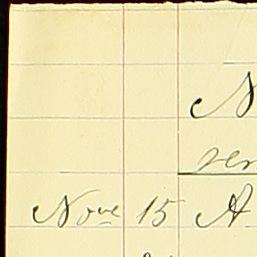 N
ser
Nove 15 A